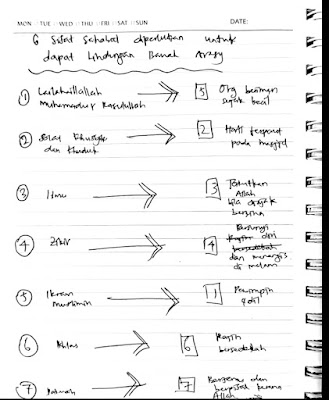 MON TUE WED THU FRI SAT SUN DATE:
6 Sifat Sahabat diperlukan untuk
dapat Lindungan Banah Arasy
1 Lailahaillallah
Muhammadur Rasulullah
5 Org beriman
sejak kecil
2 Solat Khusyu'
dan Khudu'
2 Hati terpaut
pada masjid
3 Ilmu
3 Allah
bila diajak
berzina
4 Zikir
4 diri
dan menangis
di malam
5 Ikram
muslimin
1 Pemimpin
adil
6 Ikhlas
6 Rajin
bersedekah
7 Dakwah
7 dan
berpisah kerana
Allah